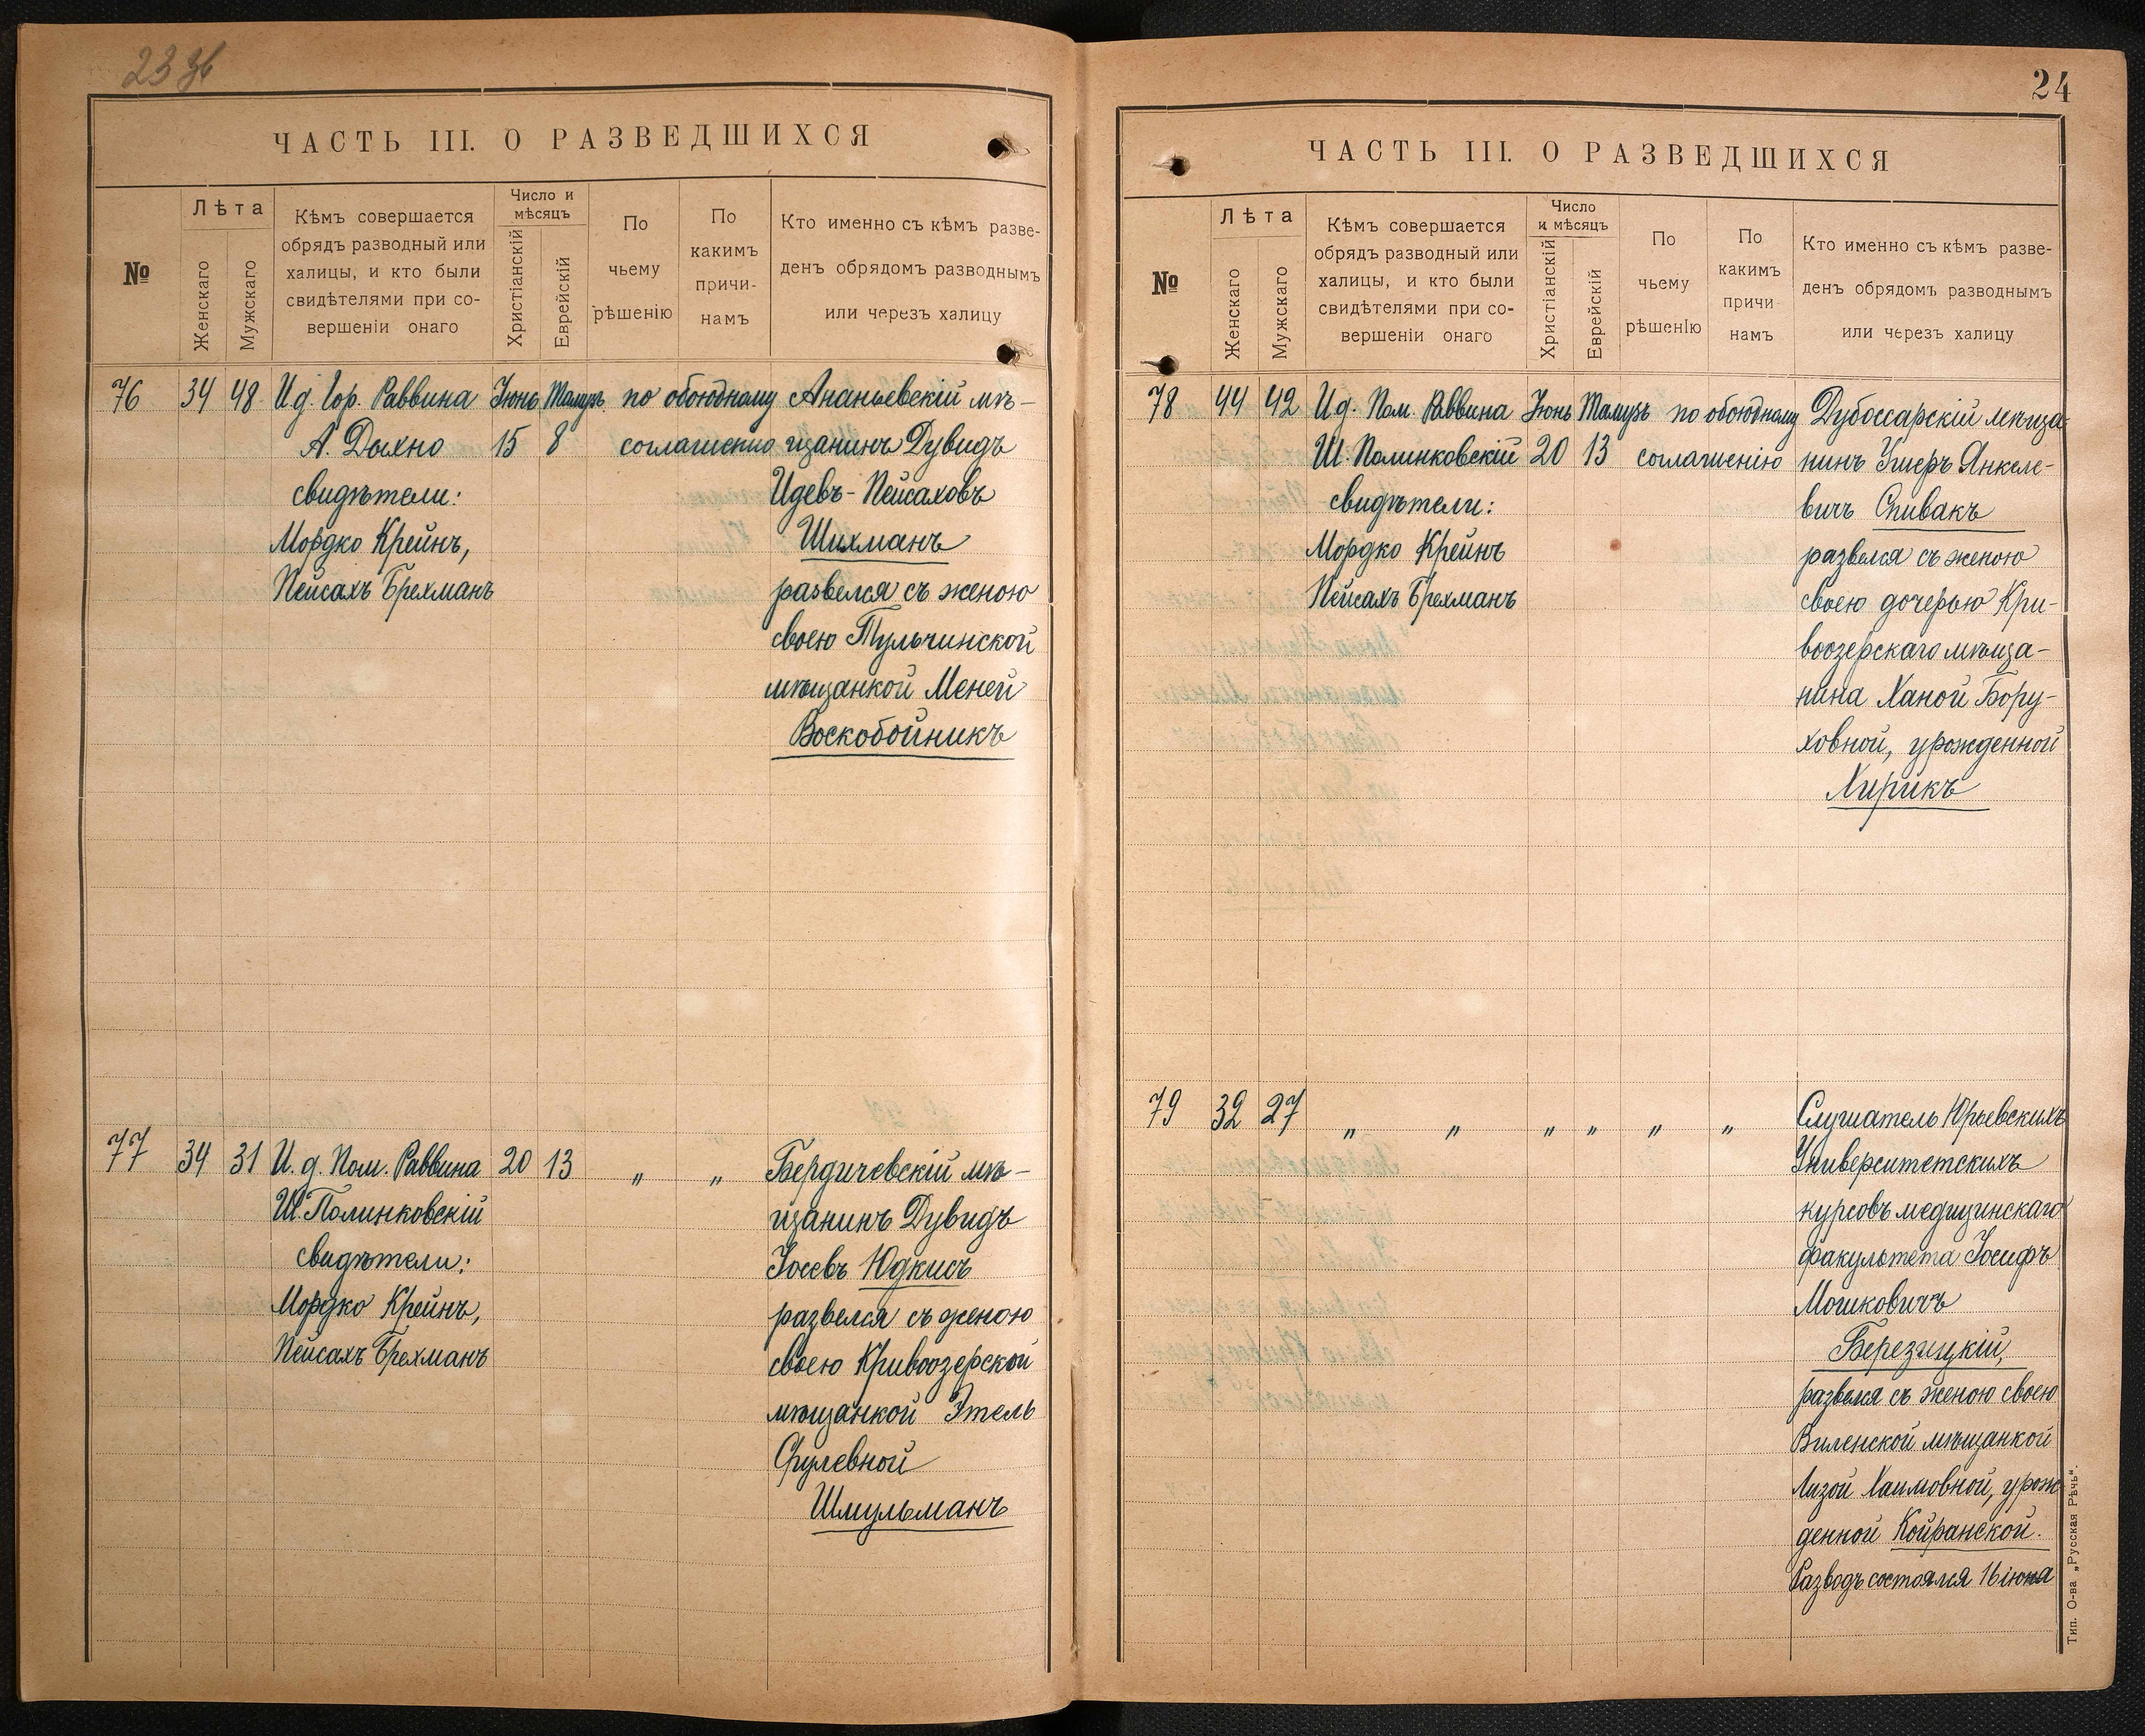 23 зв
ЧАСТЬ III. О РАЗВЕДШИХСЯ
№
Лѣта
Женскаго
Мужскаго
Кѣмъ совершается
обрядъ разводный или
халицы, и кто были
свидѣтелями при со-
вершеніи онаго
Число и
мѣсяцъ
Христіанскій
Еврейскій
По
чьему
рѣшенію
По
какимъ
причи-
намъ
Кто именно съ кѣмъ разве-
денъ обрядомъ разводнымъ
или черезъ халицу
76 34 48 И д. Гор. Раввина Іюнь Тамузъ по обоюдному Ананьевскій мѣ-
А. Дыхно 15 8 соглашенію щанинъ Дувидъ
свидѣтели: Идевъ-Пейсаховъ
Мордко Крейнъ, Шихманъ
Пейсахъ Брехманъ развелся съ женою
своею Тульчинской
мѣщанкой Меней
Воскобойникъ
77 34 31 И. д. Пом. Раввина 20 13 " " Бердичевскій мѣ-
Ш. Полинковскій щанинъ Дувидъ
свидѣтели: Іосевъ Юдкисъ
Мордко Крейнъ, развелся съ женою
Пейсахъ Брехманъ своею Кривоозерской
мѣщанкой Этель
Срулевной
Шмульманъ
24
ЧАСТЬ III. О РАЗВЕДШИХСЯ
№
Лѣта
Женскаго
Мужскаго
Кѣмъ совершается
обрядъ разводный или
халицы, и кто были
свидѣтелями при со-
вершеніи онаго
Число
и мѣсяцъ
Христіанскій
Еврейскій
По
чьему
рѣшенію
По
какимъ
причи-
намъ
Кто именно съ кѣмъ разве-
денъ обрядомъ разводнымъ
или черезъ халицу
78 44 42 И д. Пом. Раввина Іюнь Тамузъ по обоюдному Дубоссарскій мѣща-
Ш. Полинковскій 20 13 соглашенію нинъ Ушеръ Янкеле-
свидѣтели: вичъ Спивакъ
Мордко Крейнъ развелся съ женою
Пейсахъ Брехманъ своею дочерью Кри-
воозерскаго мѣща-
нина Ханой Бору-
ховной, урожденной
Хирикъ
79 32 27 " " " " " " Слушатель Юрьевскихъ
Университетскихъ
курсовъ медицинскаго
факультета Іосифъ
Мошковичъ
Березицкій,
развелся съ женою своею
Виленской мѣщанкой
Лизой Хаимовной, урож
денной Койранской.
Разводъ состоялся 16 іюня
Тип. О-ва „Русская Рѣчь“.